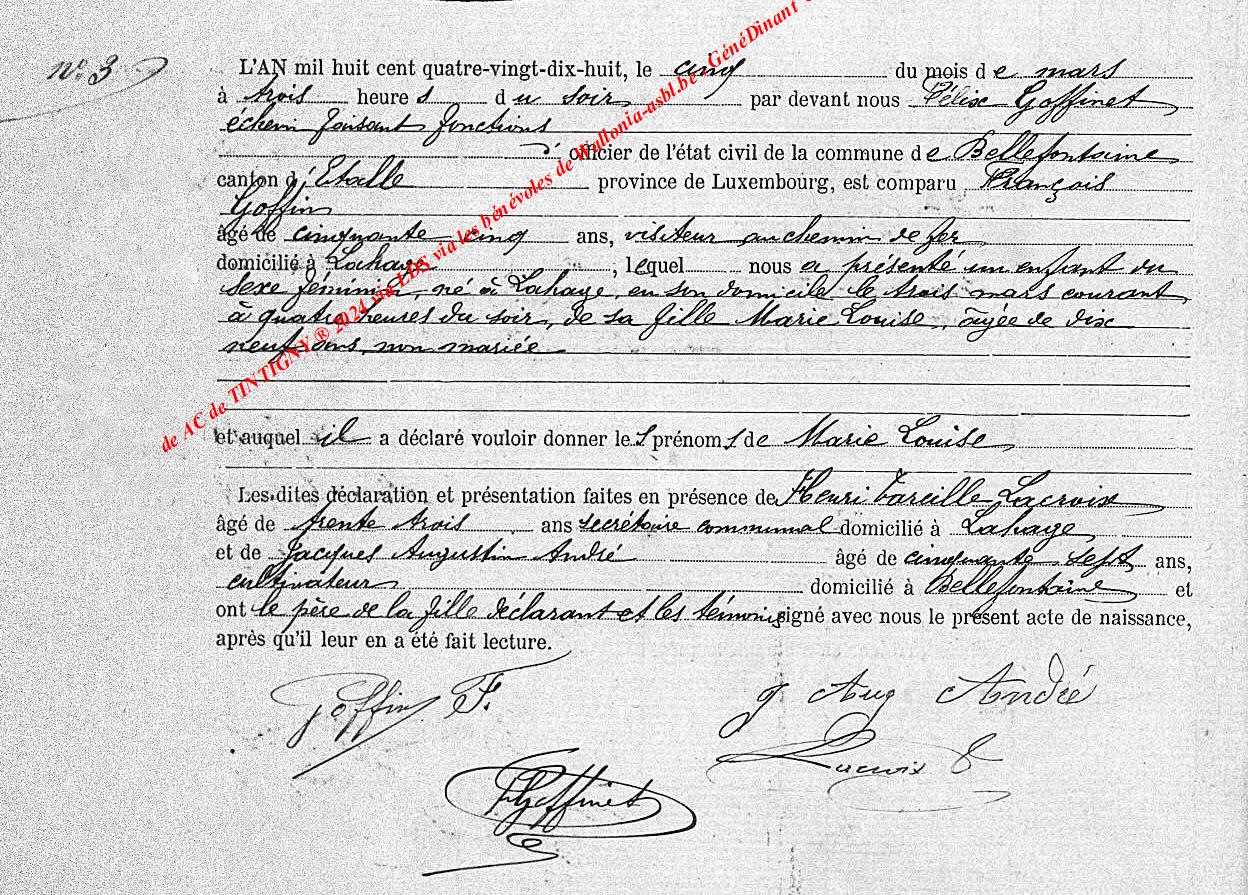 n° 3
L'AN mil huit cent quatre-vingt-dix-huit, le cinq du mois de mars
à trois heures du soir par devant nous Félix Goffinet
échevin faisant fonctions
d'officier de l'état civil de la commune de Bellefontaine
canton d'Etalle province de Luxembourg, est comparu François
Goffin
âgé de cinquante cinq ans, visiteur au chemin de fer
domicilié à Lahage, lequel nous a présenté un enfant du
sexe féminin, né à Lahage, en son domicile le trois mars courant
à quatre heures du soir, de sa fille Marie Louise, âgée de dix
neuf ans, non mariée
et auquel il a déclaré vouloir donner les prénoms de Marie Louise,
Les dites déclaration et présentation faites en présence de Henri Lacroix
âgé de trente trois ans secrétaire communal domicilié à Lahage
et de Jacques Augustin André âgé de cinquante sept ans,
cultivateur domicilié à Bellefontaine et
ont le père de la fille déclarant et les témoins signé avec nous le présent acte de naissance,
après qu'il leur en a été fait lecture.
Goffin F.
J Aug André
Lacroix
Goffinet
de AC de TINTIGNY ® 2024 via LDS via les bénévoles de Wallonia-asbl.be - GénéDinant